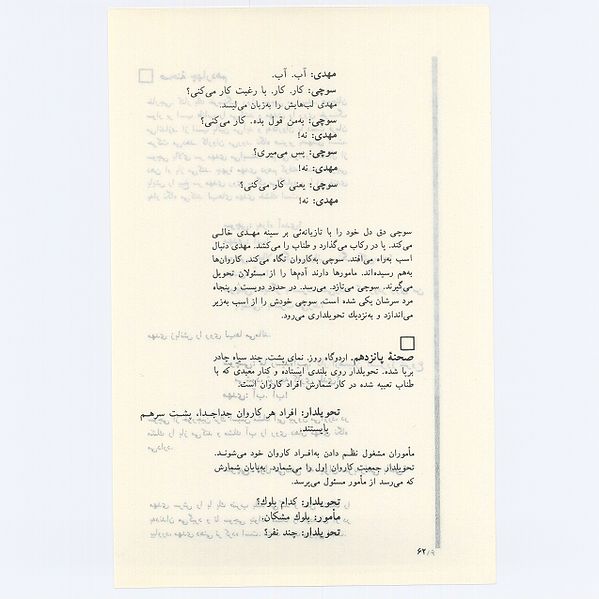 مهدی: آب. آب.
سوچی: کار. کار. با رغبت کار می‌کنی؟
مهدی لب‌هایش را به‌زبان می‌لیسد.
سوچی: به‌من قول بده. کار می‌کنی؟
مهدی: نه!
سوچی: پس می‌میری؟
مهدی: نه!
سوچی: یعنی کار می‌کنی؟
مهدی: نه!
سوچی دق دل خود را با تازیانه‌ئی بر سینه مهدی خالی
می‌کند. پا در رکاب می‌گذارد و طناب را می‌کشد. مهدی دنبال
اسب به‌راه می‌افتد. سوچی به‌کاروان نگاه می‌کند. کاروان‌ها
به‌هم رسیده‌اند. مامورها دارند آدم‌ها را از مسئولان تحویل
می‌گیرند. سوچی می‌تازد. می‌رسد. در حدود دویست و پنجاه
مرد سرشان یکی شده است. سوچی خودش را از اسب به‌زیر
می‌اندازد و به‌نزدیك تحویلداری می‌رود.
صحنهٔ پانزدهم. اردوگاه روز. نمای پشت. چند سیاه چادر
برپا شده. تحویلدار روی بلندی ایستاده و کنار معبدی که با
طناب تعبیه شده در کار شمارش افراد کاروان است.
تحویلدار: افراد هر کاروان جداجدا، پشت سرهم
بایستند.
ماموران مشغول نظم دادن به‌افراد کاروان خود می‌شوند.
تحویلدار جمعیت کاروان اول را می‌شمارد. به‌پایان شمارش
که می‌رسد از مأمور مسئول می‌پرسد.
تحویلدار: کدام بلوك؟
مأمور: بلوك مشکان.
تحویلدار: چند نفر؟
۶۲